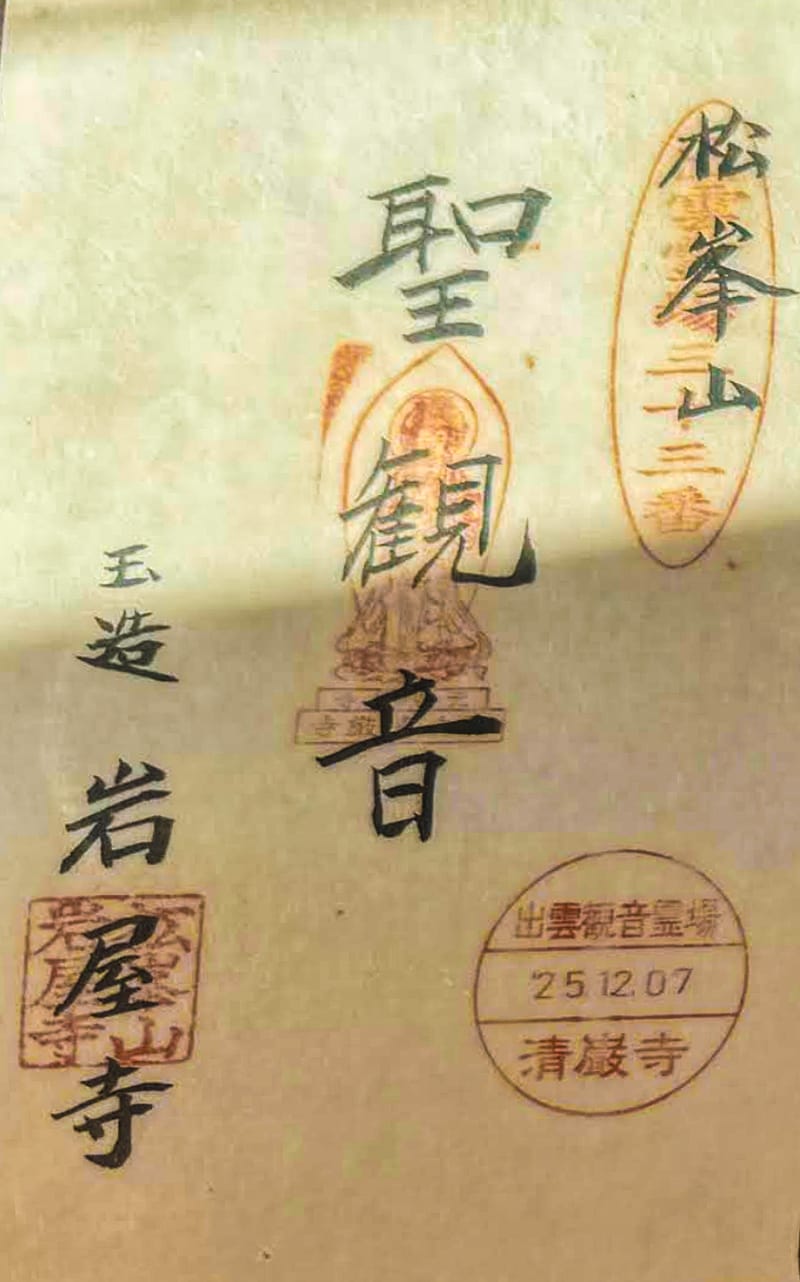 松峯山
三十三番
聖観音
巌寺
玉造 岩屋寺
松峯山
岩屋寺
出雲観音霊場
'25.12.07
清巌寺